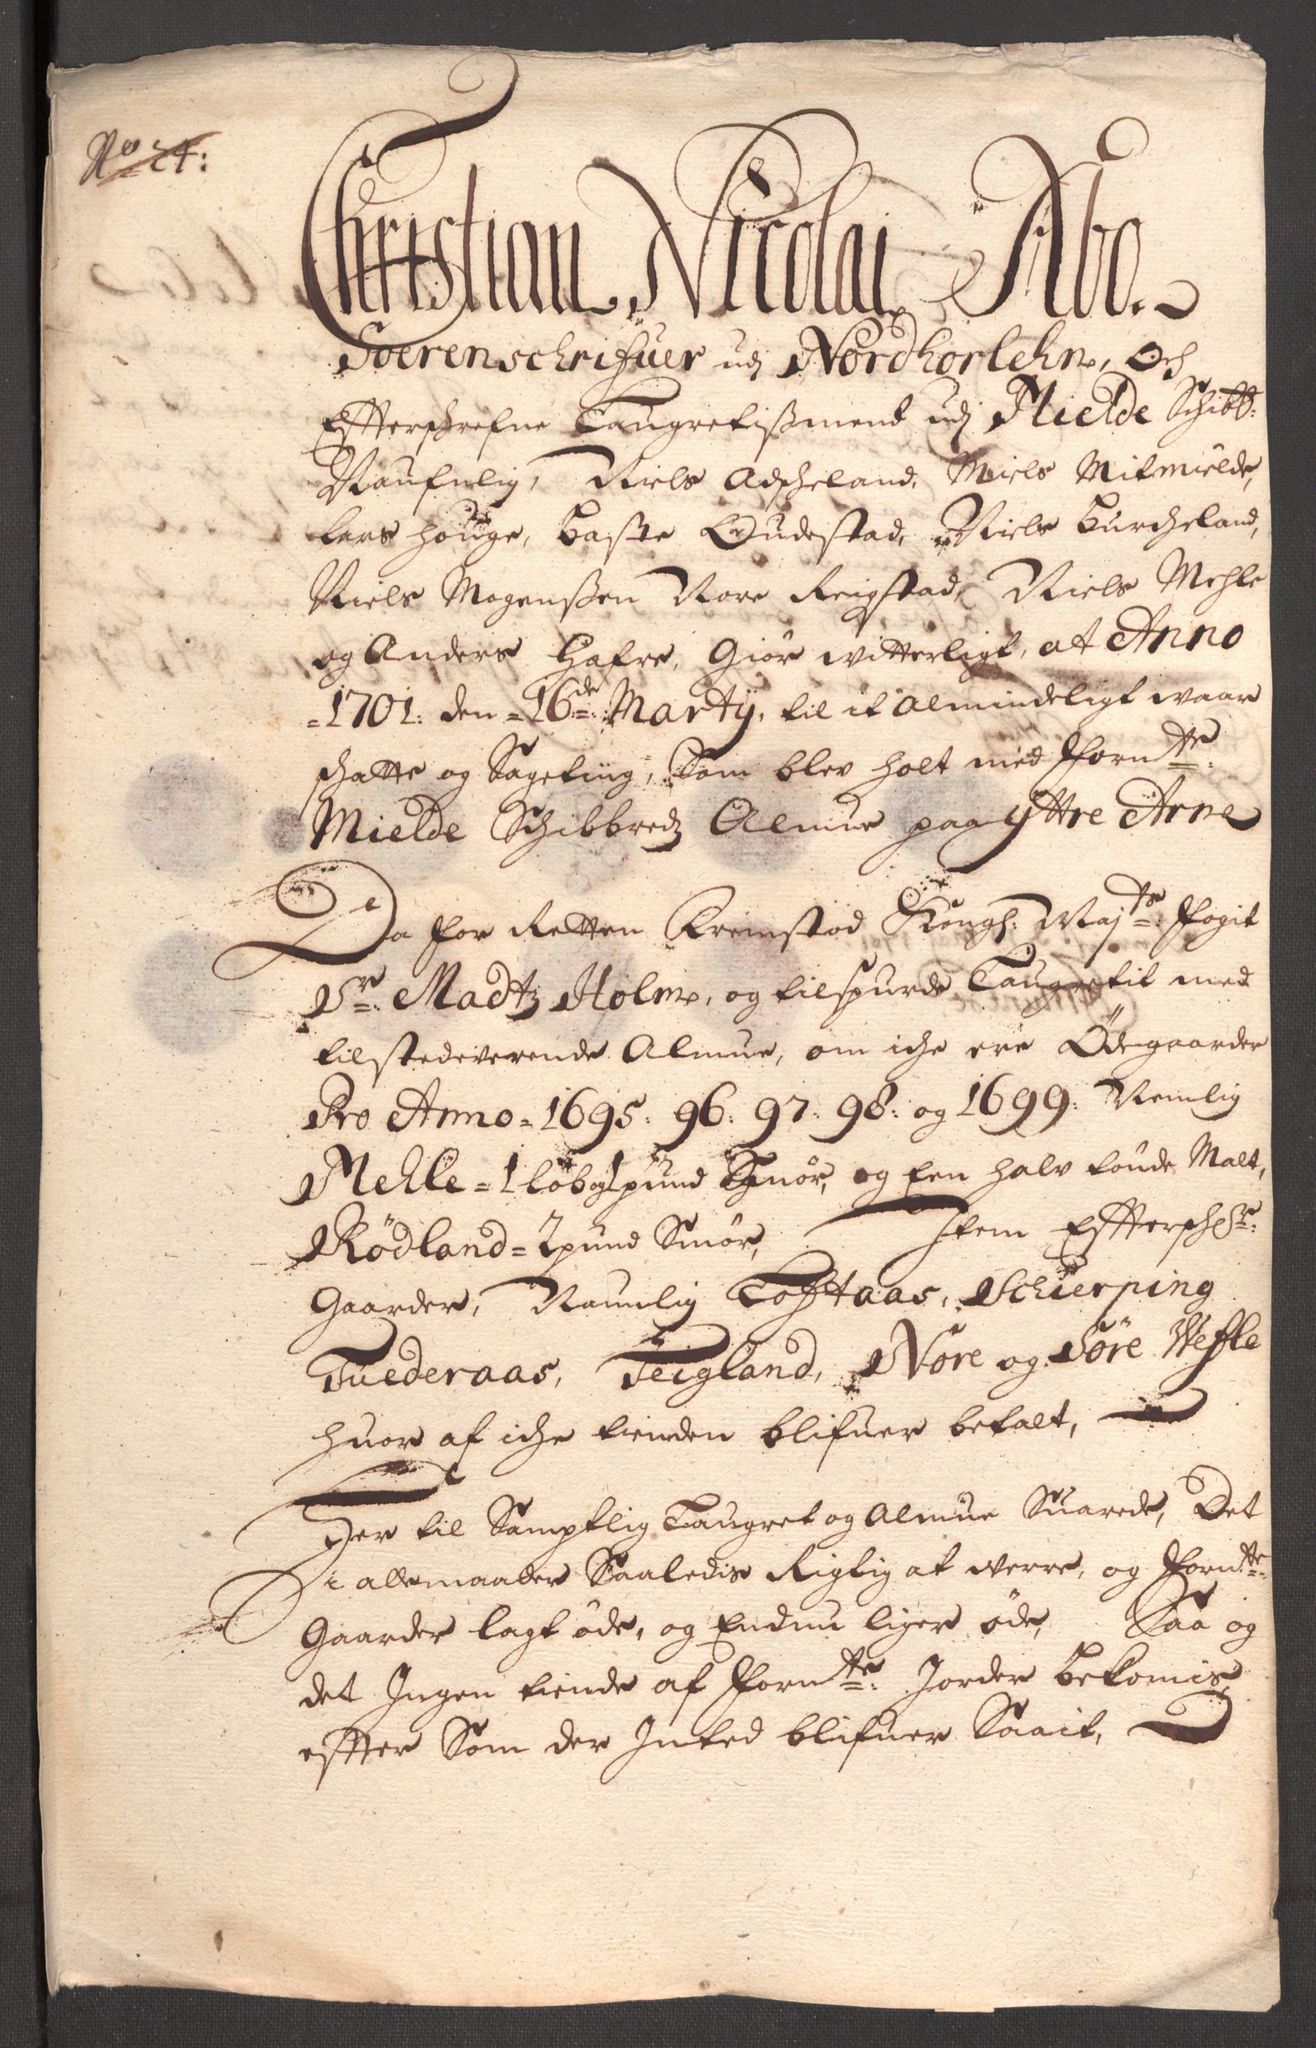 No 24:
Christian Nicolai Abo.
Soerenschrifuer udj Nordhorlehn, Och
Effterschrefne Laugretißmend udj Mielde Schibb:
Naufnlig, Niels Adscheland, Niels Mitmielde,
Lars Houge, Baste Qudestad, Niels Burcheland,
Niels Mogenßen Nore Reigstad, Niels Mehle
og Anders Hafre, Giör witterligt, at Anno
1701. den 16de Martÿ, til it Almindeligt waar
schatte og Sageting, Som blev holt med Fornte:
Mielde Schibbredz Almue paa Ÿttre Arne
Da for Retten Fremstod Kongl: Majts: Fogit
Sr: Madtz Holm, og tilspurde Laugretit med
tilstedeverende Almue, om iche ere Ödegaarder
Pro Anno 1695: 96: 97: 98: og 1699: Nemlig
Mehle = 1 löb og 1 pund Smör, og Een halv tönde Malt,
Rödland = 2 pund Smör, Item Effterschr:
Gaarder, Naunlig Toftaas, Schierping
Tuederaas, Teigland, Nore og Söre Wefle
huor af iche tienden blifuer betalt,
Her til Samptlig Laugret og Almue Suarede, Det
i alle maader Saaledis Rigtig at werre, og Fornte:
Gaarder lagt öde, og Endnu liger öde, Saa og
det Ingen tiende af Fornte: Jorder bekomis,
effter Som der Inted blifuer Saait,